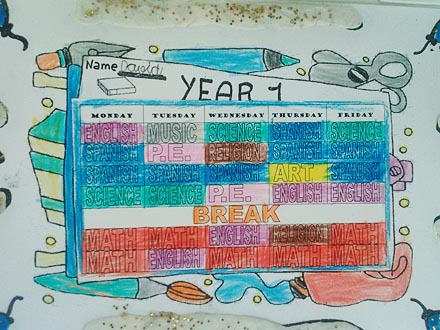 Name
YEAR 1
MONDAY TUESDAY WEDNESDAY THURSDAY FRIDAY
ENGLISH MUSIC SCIENCE SPANISH SCIENCE
SPANISH P.E. RELIGION SPANISH SPANISH
SPANISH SPANISH SPANISH ART SPANISH
SCIENCE SCIENCE P.E. ENGLISH ENGLISH
BREAK
MATH MATH ENGLISH RELIGION MATH
MATH ENGLISH MATH MATH MATH